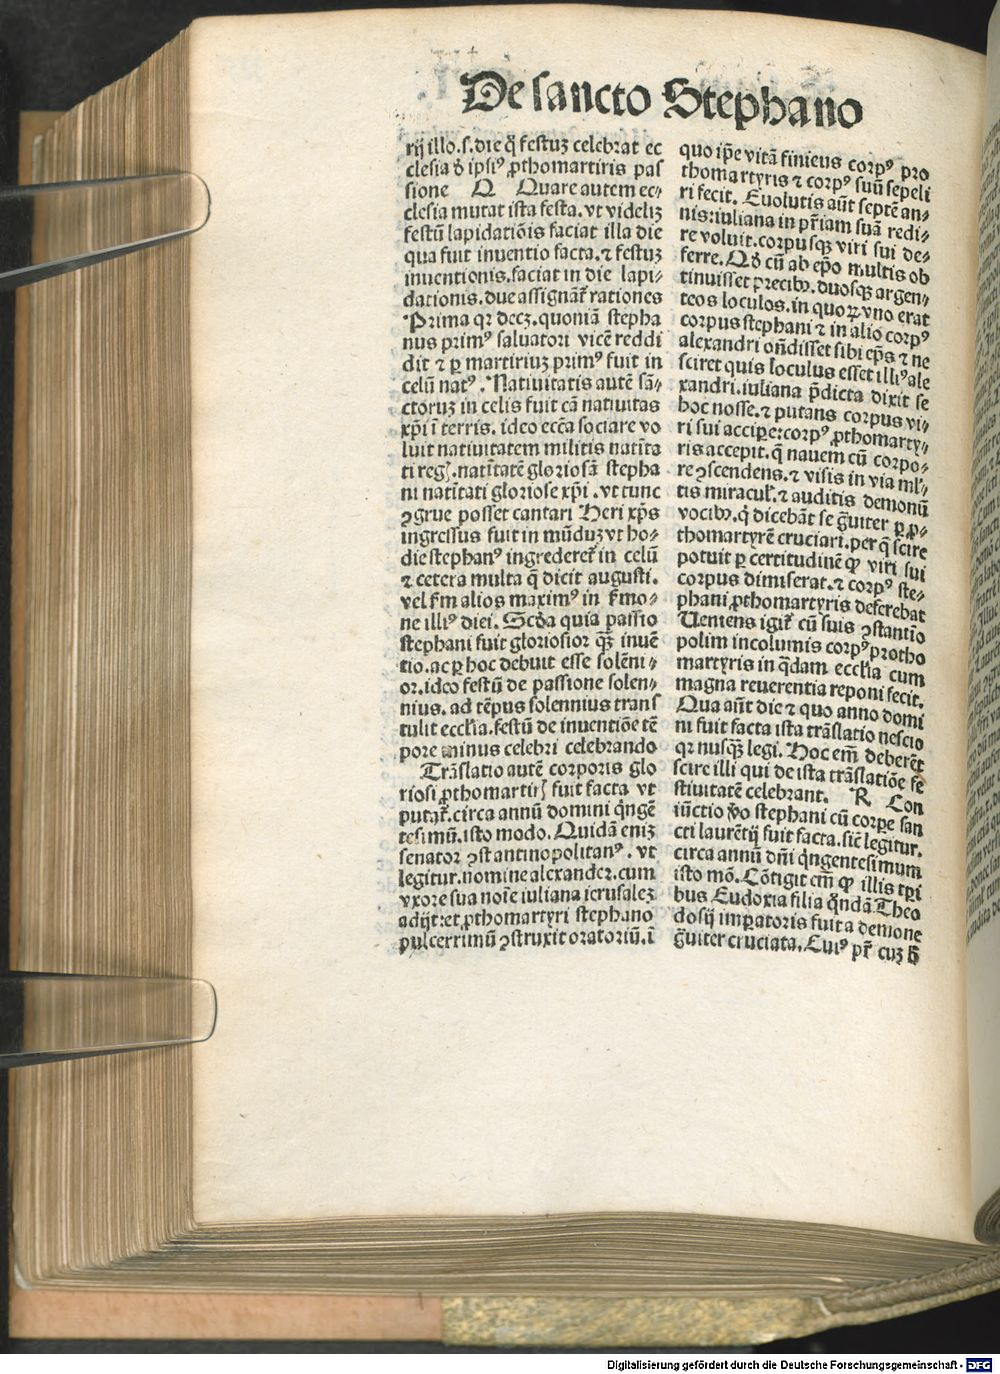 De sancto Stephano
rij illo.s.die q̄ festuꝫ celebrat ec
clesia d̄ ipsiꝰ ꝓthomartiris pas
sione Q Quare autem ec⸗
clesia mutat ista festa. vt videliꝫ
festū lapidatiōis faciat illa die
qua fuit inuentio facta. ⁊ festuꝫ
inuentionis. faciat in die lapi⸗
dationis. due assignāt̄ rationes
Prima qꝛ decꝫ. quoniā stepha
nus primꝰ saluatori vicē reddi
dit ⁊ ꝑ martiriuꝫ primꝰ fuit in
celū natꝰ. Natiuitatis autē sā⸗
ctoruꝫ in celis fuit cā natiuitas
xp̄i ī terris. ideo ecc̄a sociare vo
luit natiuitatem militis natīta
ti reg̛. natītatē gloriosā stepha
ni natītati gloriose xp̄i. vt tunc
ꝯgrue posset cantari Heri xp̄s
ingressus fuit in mūduꝫ vt ho⸗
die stephanꝰ ingrederet̄ in celū
⁊ cetera multa q̄ dicit augusti.
vel s̄m alios maximꝰ in s̄mo⸗
ne illiꝰ diei. Scd̄a quia passio
stephani fuit gloriosior qꝫ inuē
tio. ac ꝑ hoc debuit esse solēni⸗
or. ideo festū de passione solen⸗
nius. ad tēpus solennius trans
tulit eccłia. festū de inuentiōe tē
pore minus celebri celebrando
Trāslatio autē corporis glo
riosi ꝓthomartir̛ fuit facta vt
putat̄. circa annū domini qn̄gē
tesimū. isto modo. Quidā eniꝫ
senator ꝯstantinopolitanꝰ. vt
legitur. nomine alexander. cum
vxore sua noīe iuliana ierusaleꝫ
adijt: et ꝓthomartyri stephano
pulcerrimū ꝯstruxit oratoriū. ī
quo ip̄e vitā finiens corpꝰ pro
thomartyris ⁊ corpꝰ suū sepeli
ri fecit. Euolutis aūt septē an⸗
nis: iuliana in pr̄iam suā redi⸗
re voluit. corpusqꝫ viri sui de⸗
ferre. Qd̄ cū ab ep̄o multis ob
tinuisset p̄ecibꝰ. duosqꝫ argen⸗
teos loculos. in quoꝝ vno erat
corpus stephani ⁊ in alio corpꝰ
alexandri on̄disset sibi ep̄s ⁊ ne
sciret quis loculus esset illiꝰ ale
xandri. iuliana p̄dicta dixit se
hoc nosse. ⁊ putans corpus vi⸗
ri sui acciꝑe: corpꝰ ꝓthomarty⸗
ris accepit. q̄ nauem cū corpo⸗
re ꝯscendens. ⁊ visis in via ml̄⸗
tis miracuł. ⁊ auditis demonū
vocibꝰ. q̄ dicebāt se ḡuiter ꝑ ꝓ⸗
thomartyrē cruciari. per q̄ scire
potuit ꝑ certitudinē ꝙ viri sui
corpus dimiserat. ⁊ corpꝰ ste⸗
phani ꝓthomartyris deferebat
Ueniens igit̄ cū suis ꝯstantīo
polim incolumis corpꝰ protho
martyris in q̄dam eccłia cum
magna reuerentia reponi fecit.
Qua aūt die ⁊ quo anno domi
ni fuit facta ista trāslatio nescio
qꝛ nusqꝫ legi. Hoc em̄ deberēt
scire illi qui de ista trāslatiōe fe
stiuitatē celebrant. R Con
iūctio v̄o stephani cū corꝑe san
cti laurētij fuit facta. sic̄ legitur.
circa annū dn̄i qn̄gentesimum
isto mō. Cōtigit em̄ ꝙ illis tꝑi
bus Eudoxia filia qn̄dā Theo
dosij imꝑatoris fuit a demone
ḡuiter cruciata. Cuiꝰ pr̄ cuꝫ
Digitalisierung gefördert durch die Deutsche Forschungsgemeinschaft - DFG